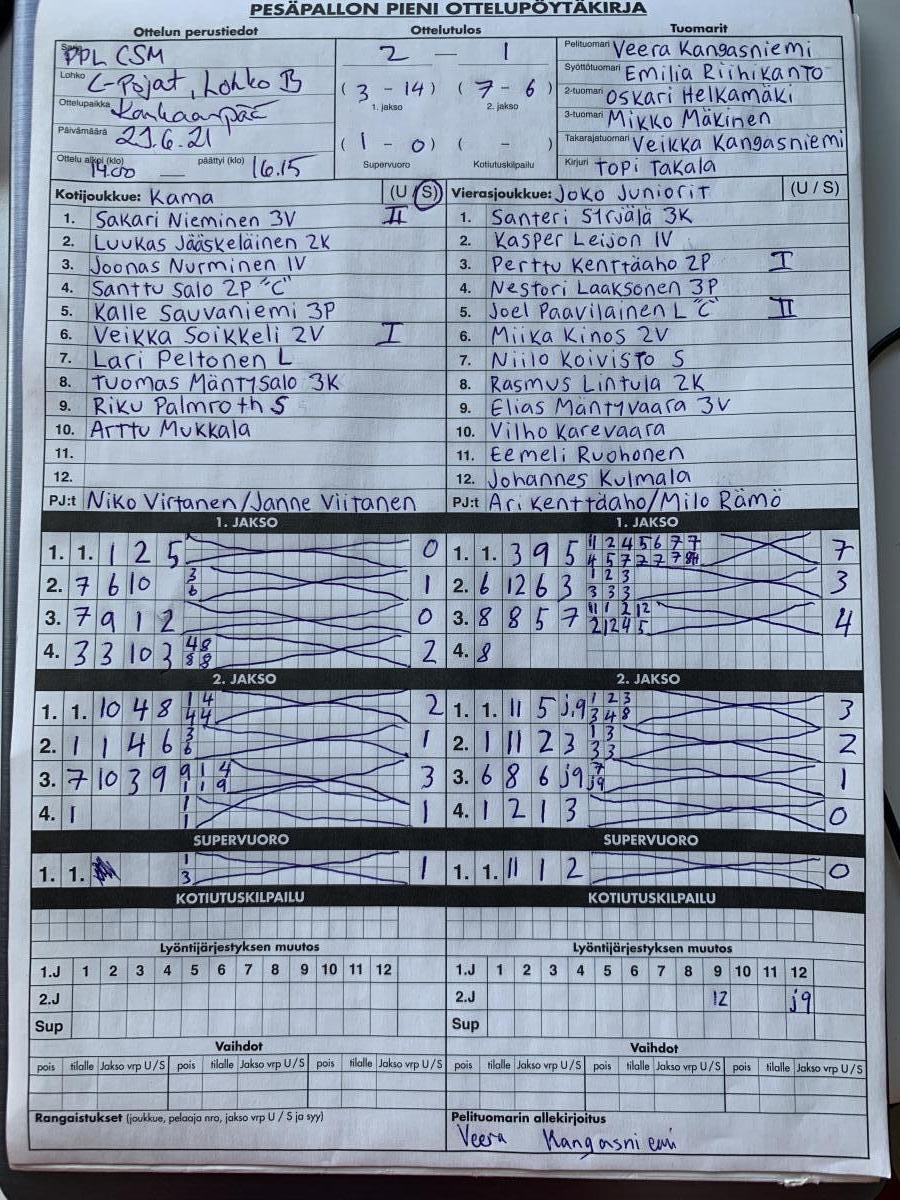 PESÄPALLON PIENI OTTELUPÖYTÄKIRJA
Ottelun perustiedot
Sarja PPL CSM
Lohko C-Pojat, Lohko B
Ottelupaikka Kankaanpää
Päivämäärä 23.6.21
Ottelu alkoi (klo) 14.00 — päättyi (klo) 16.15
Ottelutulos
2 — 1
( 3 - 14 ) ( 7 - 6 )
1. jakso 2. jakso
( 1 - 0 ) ( - )
Supervuoro Kotiutuskilpailu
Tuomarit
Pelituomari Veera Kangasniemi
Syöttötuomari Emilia Riihikanto
2-tuomari Oskari Helkamäki
3-tuomari Mikko Mäkinen
Takarajatuomari Veikka Kangasniemi
Kirjuri Topi Takala
Kotijoukkue: Kama (U / S)
1. Sakari Nieminen 3V II
2. Luukas Jääskeläinen 2K
3. Joonas Nurminen 1V
4. Santtu Salo 2P "C"
5. Kalle Sauvaniemi 3P
6. Veikka Soikkeli 2V I
7. Lari Peltonen L
8. Tuomas Mäntysalo 3K
9. Riku Palmroth S
10. Arttu Mukkala
11.
12.
PJ:t Niko Virtanen/Janne Viitanen
Vierasjoukkue: Joko Juniorit (U / S)
1. Santeri Sirjälä 3K
2. Kasper Leijon 1V
3. Perttu Kenttäaho 2P I
4. Nestori Laaksonen 3P
5. Joel Paavilainen L "C" II
6. Miika Kinos 2V
7. Niilo Koivisto S
8. Rasmus Lintula 2K
9. Elias Mäntyvaara 3V
10. Vilho Karevaara
11. Eemeli Ruohonen
12. Johannes Kulmala
PJ:t Ari Kenttäaho/Milo Rämö
1. JAKSO
1. 1. 1 2 5 0
2. 7 6 10 3 1
6
3. 7 9 1 2 0
4. 3 3 10 3 4 8 2
8 8
2. JAKSO
1. 1. 10 4 8 1 4 2
4 4
2. 1 1 4 6 3 1
6
3. 7 10 3 9 9 1 4 3
1 1 9
4. 1 1 1
1
SUPERVUORO
1. 1. 1 1
3
KOTIUTUSKILPAILU
Lyöntijärjestyksen muutos
1.J 1 2 3 4 5 6 7 8 9 10 11 12
2.J
Sup
Vaihdot
pois tilalle Jakso vrp U/S pois tilalle Jakso vrp U/S pois tilalle Jakso vrp U/S
Rangaistukset (joukkue, pelaaja nro, jakso vrp U / S ja syy)
1. JAKSO
1. 1. 3 9 5 11 2 4 5 6 7 7 7
4 5 7 7 7 7
2. 6 12 6 3 1 2 3 3
3 3 3
3. 8 8 5 7 11 1 2 12 4
2 12 4 5
4. 8
2. JAKSO
1. 1. 11 5 j9 1 2 3 3
3 4 8
2. 1 11 2 3 1 3 2
3 3
3. 6 8 6 j9 7 1
j9
4. 1 2 1 3 0
SUPERVUORO
1. 1. 11 1 2 0
KOTIUTUSKILPAILU
Lyöntijärjestyksen muutos
1.J 1 2 3 4 5 6 7 8 9 10 11 12
2.J 12 j9
Sup
Vaihdot
pois tilalle Jakso vrp U/S pois tilalle Jakso vrp U/S pois tilalle Jakso vrp U/S
Pelituomarin allekirjoitus
Veera Kangasniemi